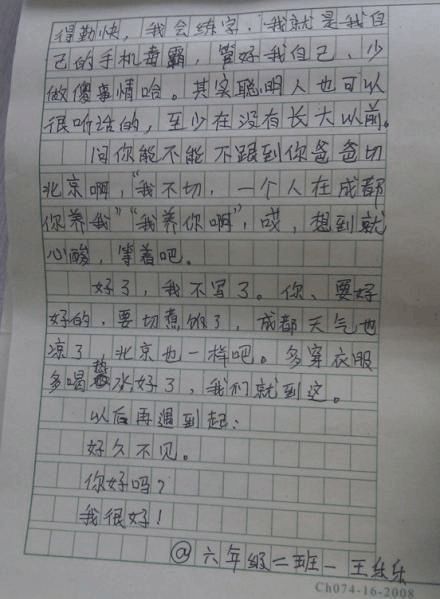 得勤快，我会练字，我就是我自
己的手机毒霸，管好我自己、少
做傻事情哈。其实聪明人也可以
很听话的，至少在没有长大以前。
问你能不能不跟到你爸爸切
北京啊，“我不切，一个人在成都
你养我”“我养你啊”，哎，想到就
心酸，等着吧。
好了，我不写了。你、要好
好的，要切煮饭了，成都天气也
凉了，北京也一样吧。多穿衣服
多喝热水好了，我们就到这。
以后再遇到起：
好久不见。
你好吗？
我很好！
@六年级二班—王乐乐
Ch074-16-2008